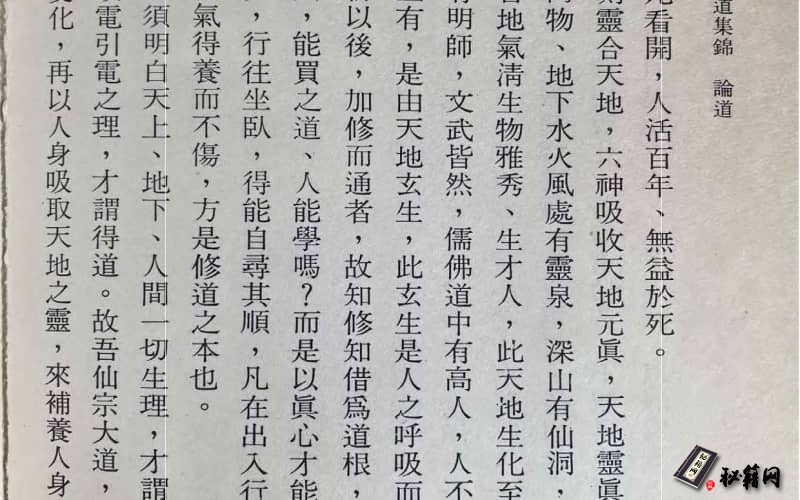 道集錦　論道
看開，人活百年、無益於死。
靈合天地，六神吸收天地元眞，天地靈眞
物、地下水火風處有靈泉，深山有仙洞，
地氣淸生物雅秀、生才人，此天地生化至
明師，文武皆然，儒佛道中有高人，人不
有，是由天地玄生，此玄生是人之呼吸而
以後，加修而通者，故知修知借爲道根，
，能買之道、人能學嗎？而是以眞心才能
，行往坐臥，得能自尋其順，凡在出入行
氣得養而不傷，方是修道之本也。
須明白天上、地下、人間一切生理，才謂
電引電之理，才謂得道。故吾仙宗大道，
化，再以人身吸取天地之靈，來補養人身
秘籍网